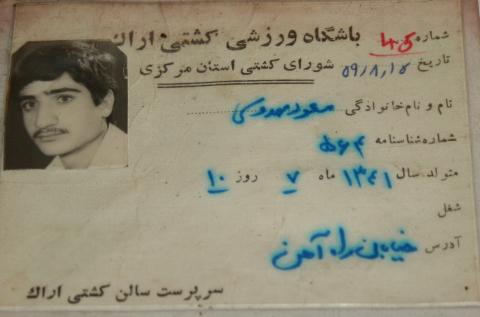 شماره
باشگاه ورزشی کشتی اراک
تاریخ ۵۹/۸/۱۵
شورای کشتی استان مرکزی
نام و نام خانوادگی مسعود
شماره شناسنامه ۵۶۴
متولد سال ۱۳۴۱ ماه ۷ روز ۱۰
شغل
آدرس خیابان راه آهن
سرپرست سالن کشتی اراک